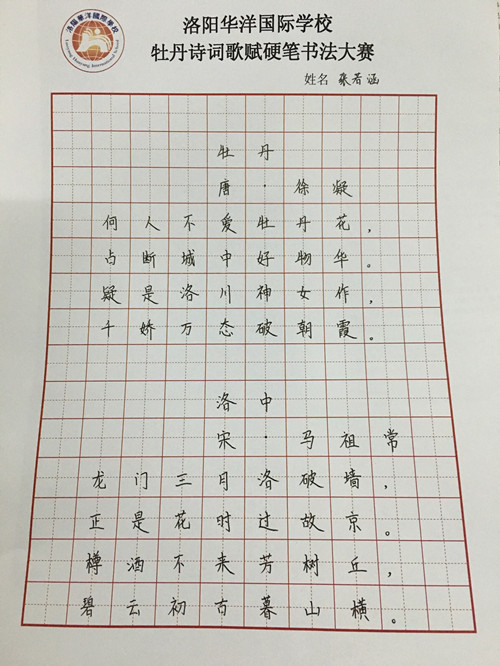 洛陽華洋國際學校
Luoyang Huayang International School
洛阳华洋国际学校
牡丹诗词歌赋硬笔书法大赛
姓名 张若涵
牡丹
唐·徐凝
何人不爱牡丹花，
占断城中好物华。
疑是洛川神女作，
千娇万态破朝霞。
洛中
宋·马祖常
龙门三月洛破墙，
正是花时过故京。
樽酒不来芳树丘，
碧云初古暮山横。